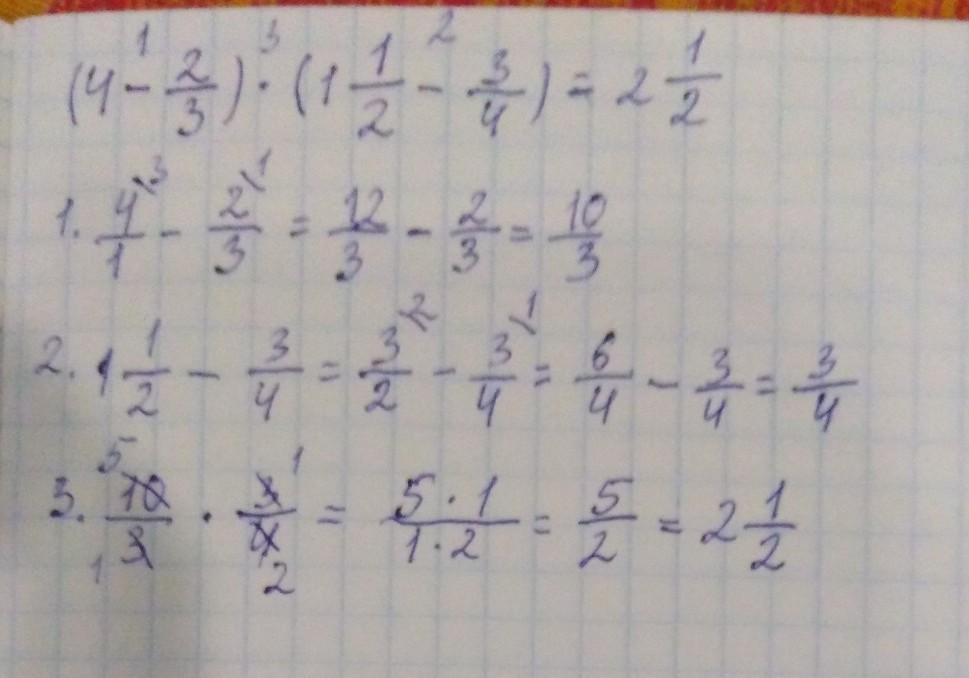 (4 - 2/3) · (1 1/2 - 3/4) = 2 1/2
1. 4/1 - 2/3 = 12/3 - 2/3 = 10/3
2. 1 1/2 - 3/4 = 3/2 - 3/4 = 6/4 - 3/4 = 3/4
3. 10/3 · 3/4 = 5 · 1/1 · 2 = 5/2 = 2 1/2